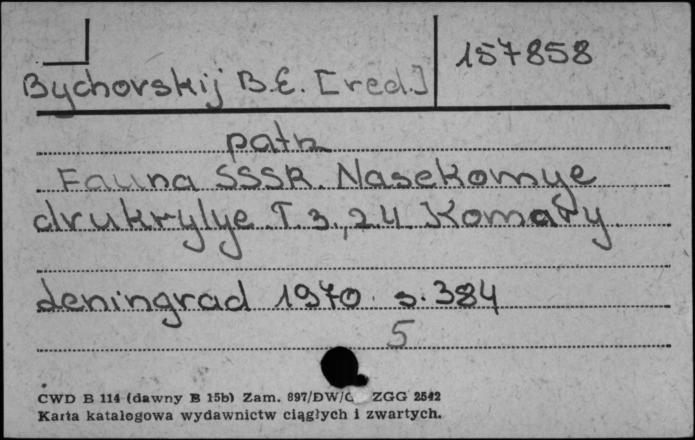 157858
Bychovskij B.E. [red.]
patrz
Fauna SSSR. Nasekomye
dvukrylye. T.3., z.4 Komary
Leningrad 1970 s. 384
5
CWD B 114 (dawny B 15b) Zam. 897/DW/ ZGG 2542
Karta katalogowa wydawnictw ciągłych i zwartych.